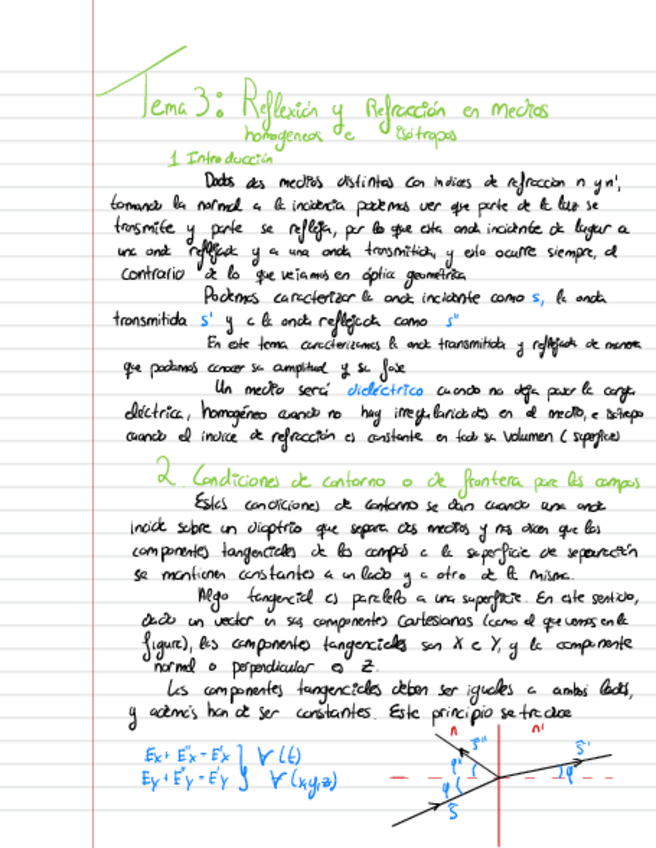 Tema 3: Reflexión y Refracción en medios
homogéneos e isótropos
1 Introducción
Dados dos medios distintos con indices de refracción n y n',
tomando la normal a la incidencia podemos ver que parte de la luz se
transmite y parte se refleja, por lo que esta onda incidente da lugar a
una onda reflejada y a una onda transmitida, y esto ocurre siempre, al
contrario de lo que veíamos en óptica geométrica
Podemos caracterizar la onda incidente como s, la onda
transmitida s' y a la onda reflejada como s"
En este tema caracterizamos la onda transmitida y reflejada de manera
que podamos conocer su amplitud y su fase
Un medio será dieléctrico cuando no deja pasar la carga
eléctrica, homogéneo cuando no hay irregularidades en el medio, e isótropo
cuando el indice de refracción es constante en todo su volumen (superficie)
2 Condiciones de contorno o de frontera para los campos
Estas condiciones de contorno se dan cuando una onda
incide sobre un dioptrio que separa dos medios y nos dicen que las
componentes tangenciales de los campos a la superficie de separación
se mantienen constantes a un lado y a otro de la misma.
Algo tangencial es paralelo a una superficie. En este sentido,
dado un vector en sus componentes cartesianas (como el que vemos en la
figura), las componentes tangenciales son X e Y, y la componente
normal o perpendicular es Z.
Las componentes tangenciales deben ser iguales a ambos lados,
y además han de ser constantes. Este principio se traduce
n n'
Ex + E"x = E'x } ∀ (t)
Ey + E"y = E'y } ∀ (x,y,z)
s" s'
φ" φ'
φ
s